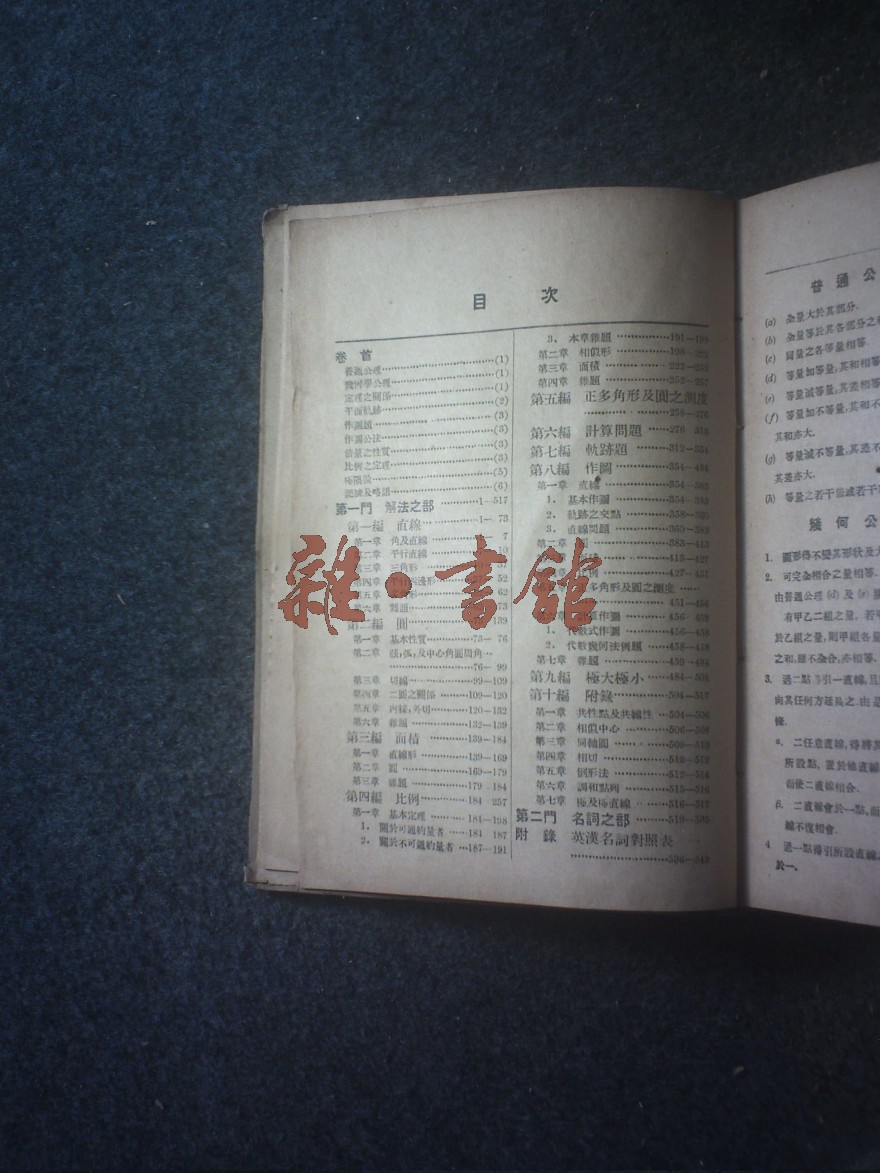 目 次
卷 首
普通公理(1)
幾何學公理(1)
定理之關係(2)
平面軌跡(3)
作圖題(3)
作圖公法(3)
倍量之性質(3)
比例之定理(5)
極限論(6)
第一門 解法之部1—517
第一編 直線1—73
第一章 角及直線7
第二章 平行直線10
第三章 三角形
第四章 平行四邊形52
第五章 62
第六章 雜題
第二編 圓139
第一章 基本性質73—76
第二章 弦,弧,及中心角圓周角
76—99
第三章 切線99—109
第四章 二圓之關係109—120
第五章 內接,外切120—132
第六章 雜題132—139
第三編 面積139—184
第一章 直線形139—169
第二章 圓169—179
第三章 雜題179—184
第四編 比例184—257
第一章 基本定理184—198
1. 關於可通約量者184—187
2. 關於不可通約量者187—191
3. 本章雜題191—198
第二章 相似形198—222
第三章 面積222—252
第四章 雜題252—257
第五編 正多角形及圓之測度
258—276
第六編 計算問題276—312
第七編 軌跡題312—354
第八編 作圖354—484
第一章 直線354—383
1. 基本作圖354—358
2. 軌跡之交點358—360
3. 直線問題360—383
第二章 383—413
413—427
427—451
多角形及圓之測度
451—456
作圖456—458
1. 代數式作圖456—458
2. 代數幾何法例題458—459
第七章 雜題459—484
第九編 極大極小484—504
第十編 附錄504—517
第一章 共性點及共線性504—506
第二章 相似中心506—509
第三章 同軸圓509—512
第四章 相切512—514
第五章 倒形法514—515
第六章 調和點列515—516
第七章 極及極直線516—517
第二門 名詞之部519—595
附 錄 英漢名詞對照表
596—647
雜·書館
普通公
(a) 全量大於其部分.
(b) 全量等於其各部分之
(c) 同量之各等量相等.
(d) 等量加等量,其和相等
(e) 等量減等量,其差相等
(f) 等量加不等量,其和不
其和亦大.
(g) 等量減不等量,其差不
其差亦大.
(h) 等量之若干倍或若干
幾何公
1. 圖形得不變其形狀及大
2. 可完全相合之量相等.
由普通公理(d)及(e)
有甲乙二組之量,若甲
於乙組之量,則甲組各量
之和,雖不全合,亦相等.
3. 過二點得引一直線,且
向其任何方延長之.由是
後.
α. 二任意直線,得將其
所設點,置於他直線
而使二直線相合.
β. 二直線會於一點,而
線不復相會.
4 過一點得引所設直線
於一.